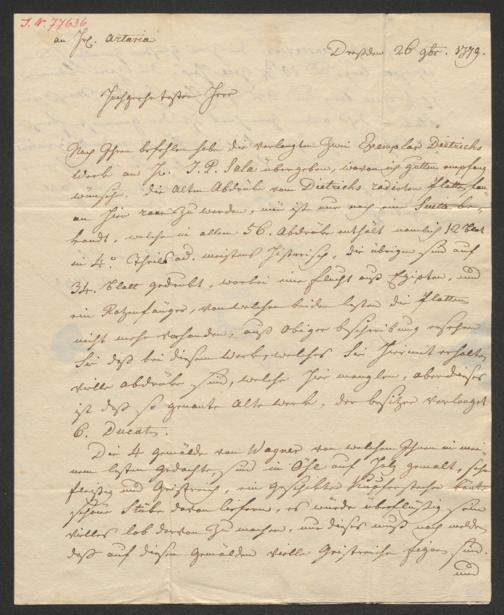 J. N. 77636
an Hrl. Artaria
Dresden 26 9br. 1779.
Hochgeehrtester Herr
Nach Ihren befehlen habe die verlangten zwei Exemplar Dietrichs
Werk an Hr. J. P. Sala übergeben, wovon ich guten empfang
wünsche. die Alten Abdrücke von Dietrichs radirten Platten
an hier rar zu werden, mir ist nur noch eine Suitte be-
kandt, welche in allem 56. Abdrücke enthält nemlich 12 Blat
in 4to. Theils ad. meistens Historisch, die übrigen sind auf
34. Blatt gedrukt, worbei eine flucht auß Egipten, und
ein Ratzenfänger, von welchen beiden lesten die Platten
nicht mehr vorhanden, auß obiger beschreibung ersehen
Sie daß bei diesem Werk, welches Sie hiermit erhalten,
vielle abdrücke sind, welche hier manglen, aber dieses
ist daß so genante Alte werk, der besitzer verlanget
6. Ducaten.
Die 4 gemälde von Wagner von welchen Ihnen in mei
nem lesten gedachte, sind in Öhl auf Holz gemalt, sehr
fleisig und Geistreich, ein geschikter Kupferstecher könt
schöne Stüke davon liefern, es würde überflüßig sein
vielles lob darvon zu machen, nur dieses muß noch melden
daß auf diesen gemälden vielle geistreiche figuren sind.
und